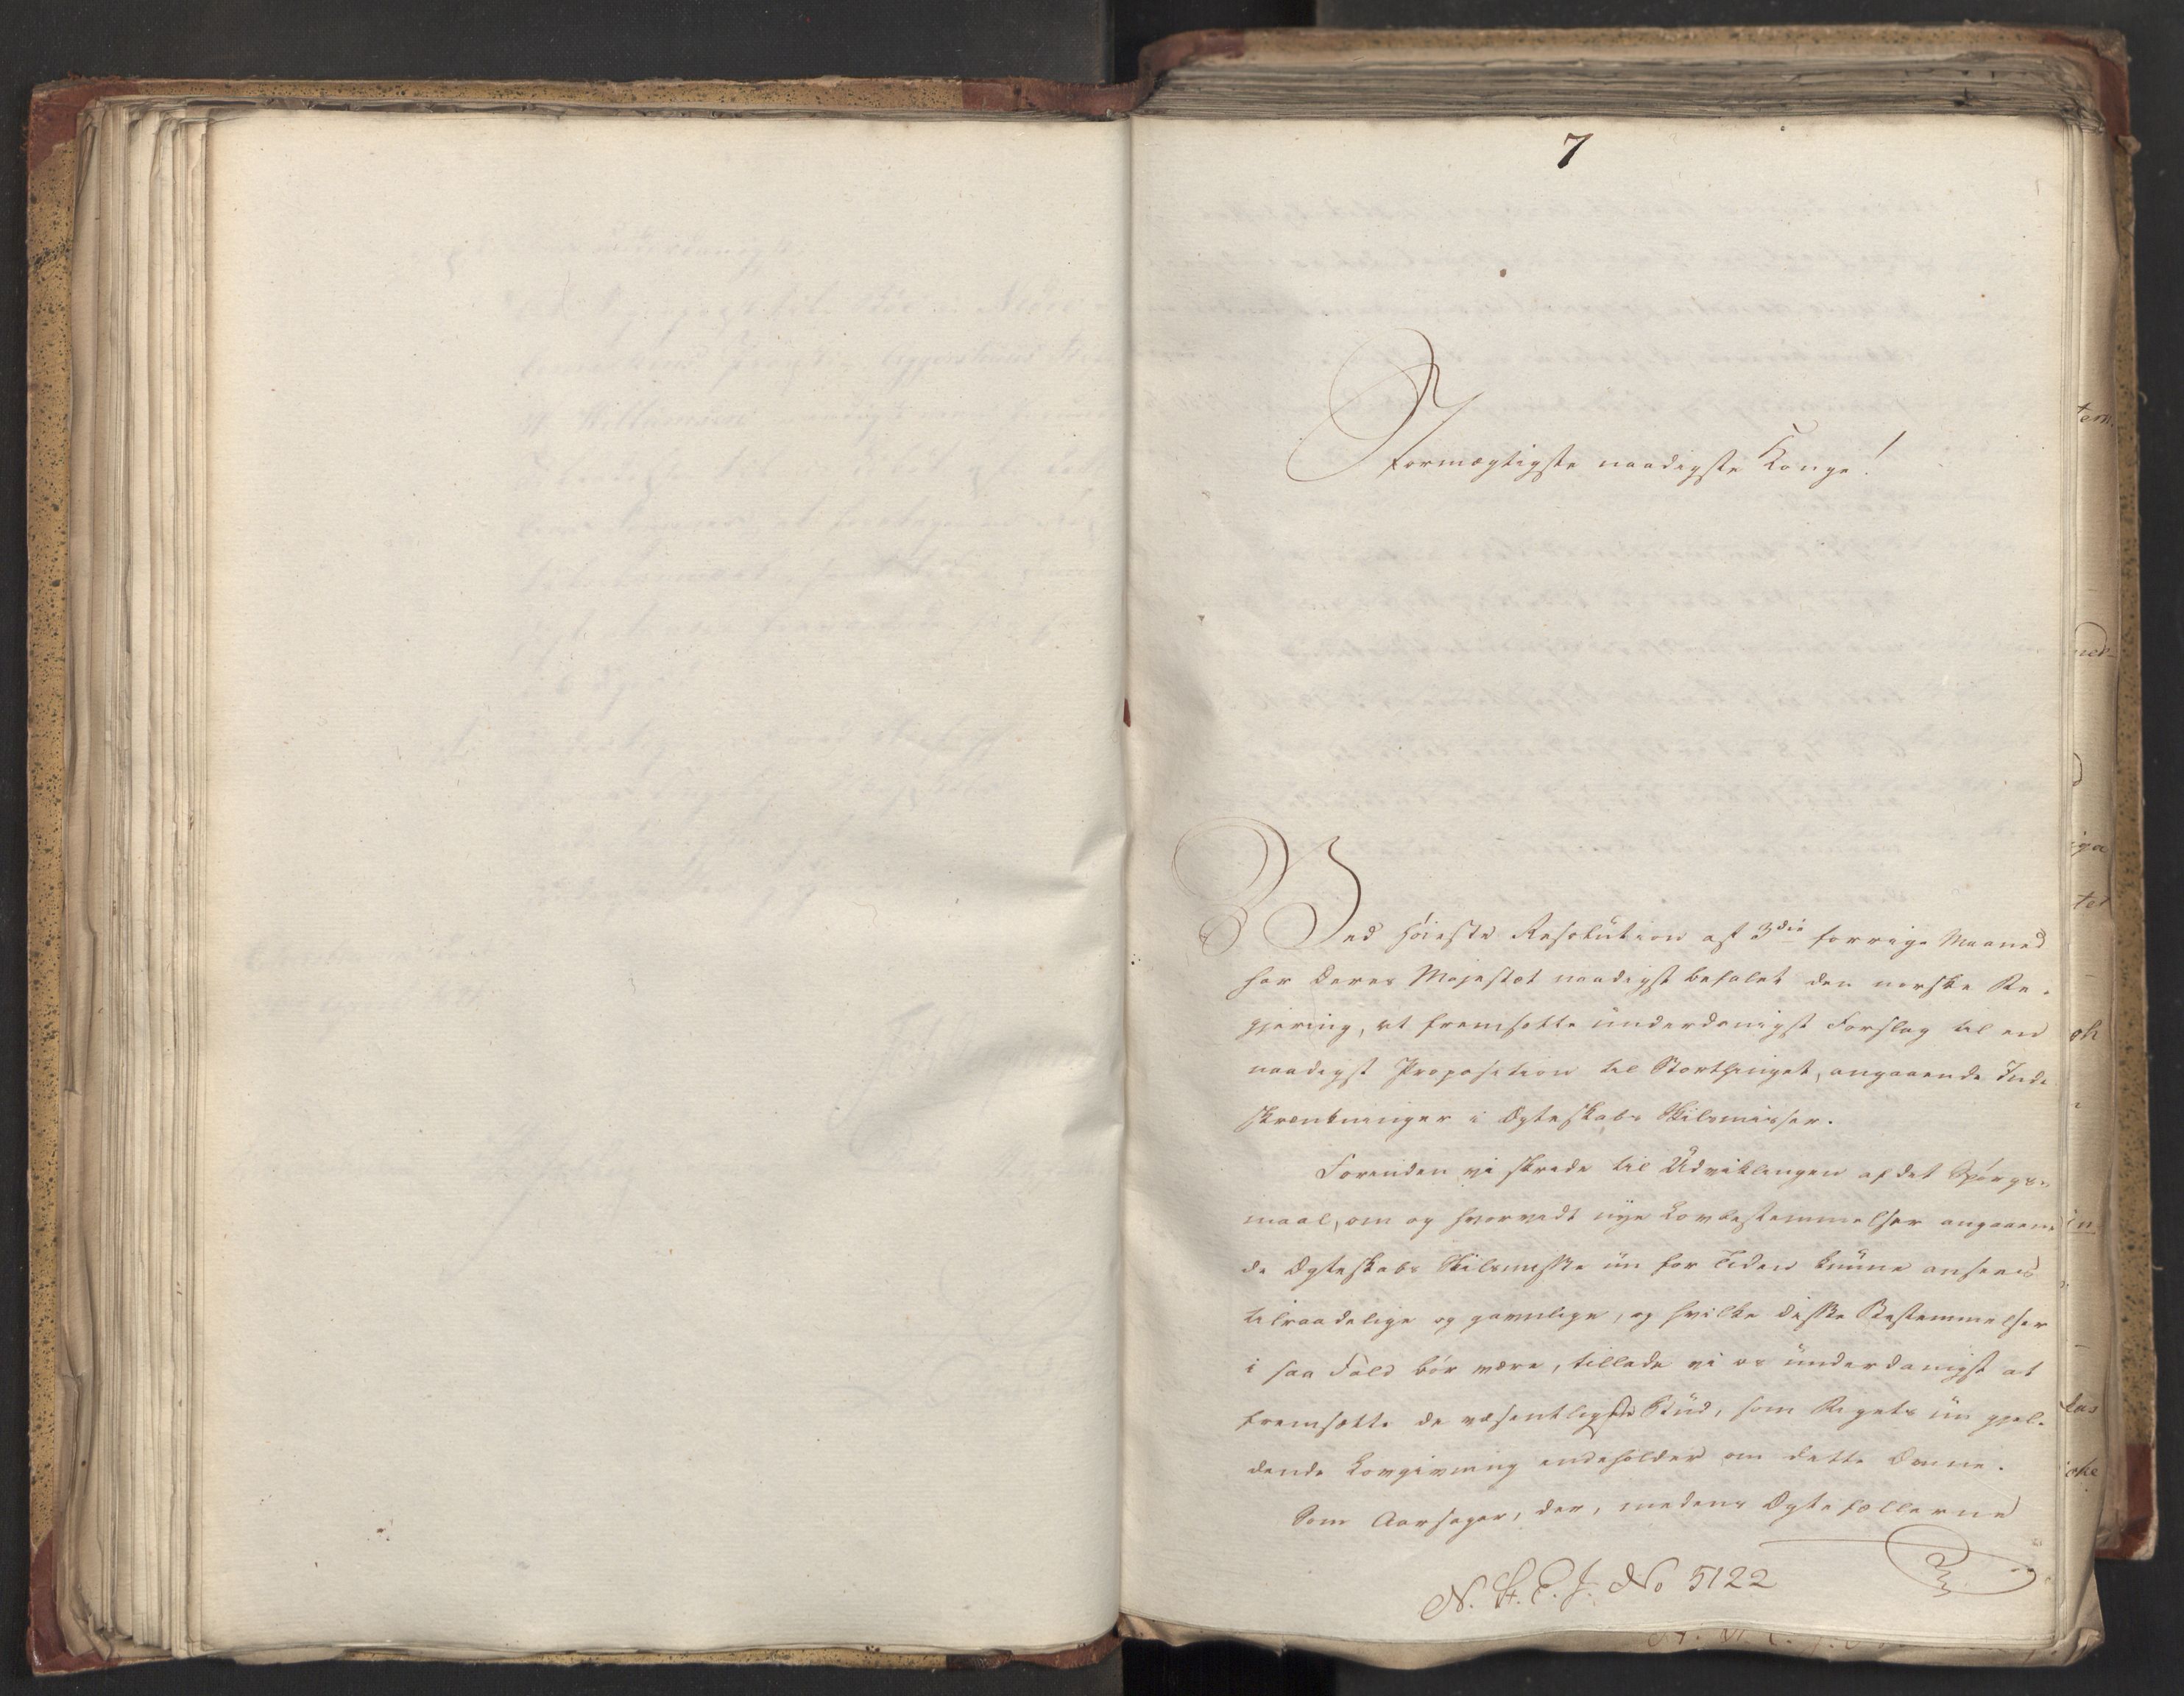 7
Stormægtigste naadigste Konge!
Ved høieste Resolution af 3die forrige Maaned
har Deres Majestæt naadigst befalet den norske Re-
gjering, at fremsætte underdanigst Forslag til en
naadigst Proposition til Storthinget, angaaende Ind-
skrænkninger i Ægteskabs Skilsmisser.
Forinden vi skride til Udviklingen af det Spørgs-
maal, om og hvorvidt nye Lovbestemmelser angaaen-
de Ægteskabs Skilsmisse nu for Tiden kunne ansees
tilraadelige og gavnlige, og hvilke disse Bestemmelser
i saa Fald bør være, tillade vi os underdanigst at
fremsætte de væsentligste Bud, som Rigets nu gjel-
dende Lovgivning indeholder om dette Emne.
Som Aarsager, der, medens Ægtefællerne
N. St. E. J. No 5122